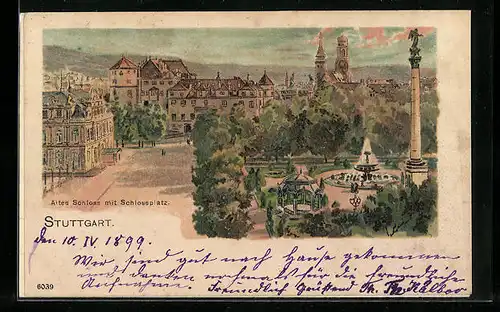 Altes Schloss mit Schlossplatz.
STUTTGART.
den 10. IV. 1899.
Wir sind gut nach Hause gekommen
und danken erst für die freundliche
Aufnahme. Freundlich Grüßend
6039